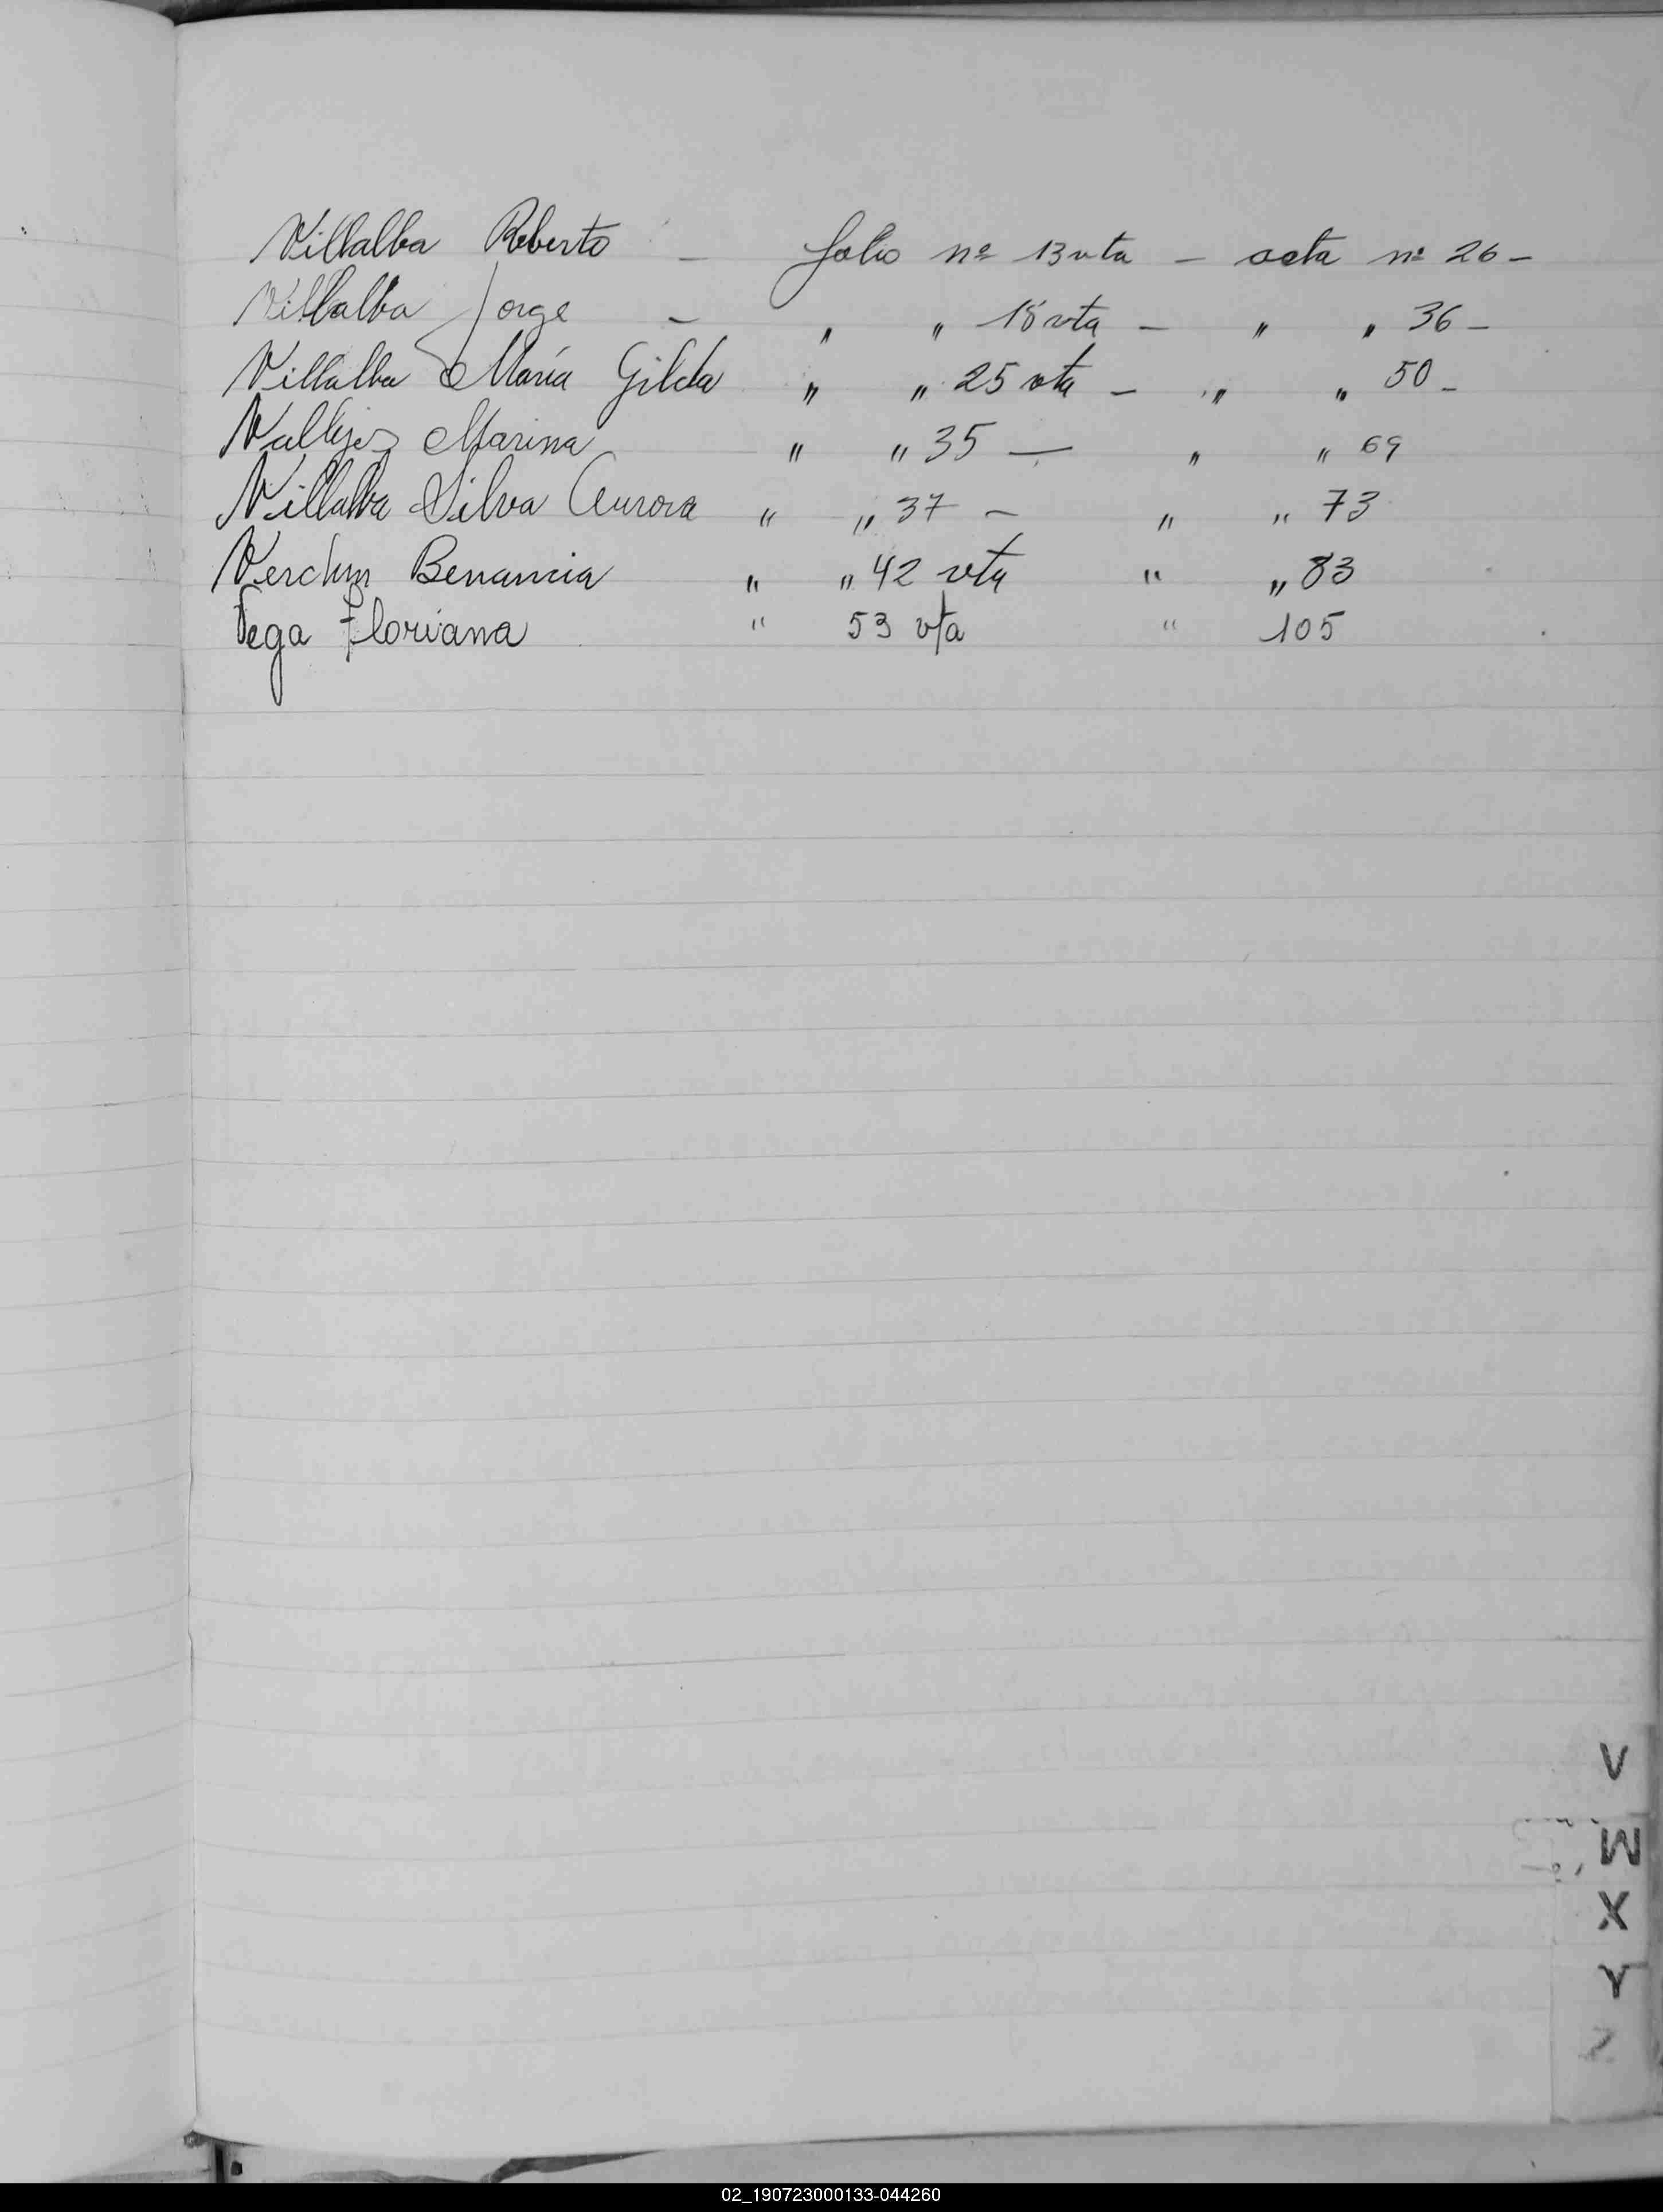 Villalba Roberto - folio nº 13 vta - acta nº 26 -
Villalba Jorge - " " 18 vta - " " 36 -
Villalba María Gilda " " 25 vta - " " 50 -
Vallejos Marina " " 35 — " " 69
Villalba Silva Aurora " " 37 - " " 73
Benancia " " 42 vta " " 83
Vega Floriana " 53 vta " 105
V
W
X
Y
Z
02_190723000133-044260